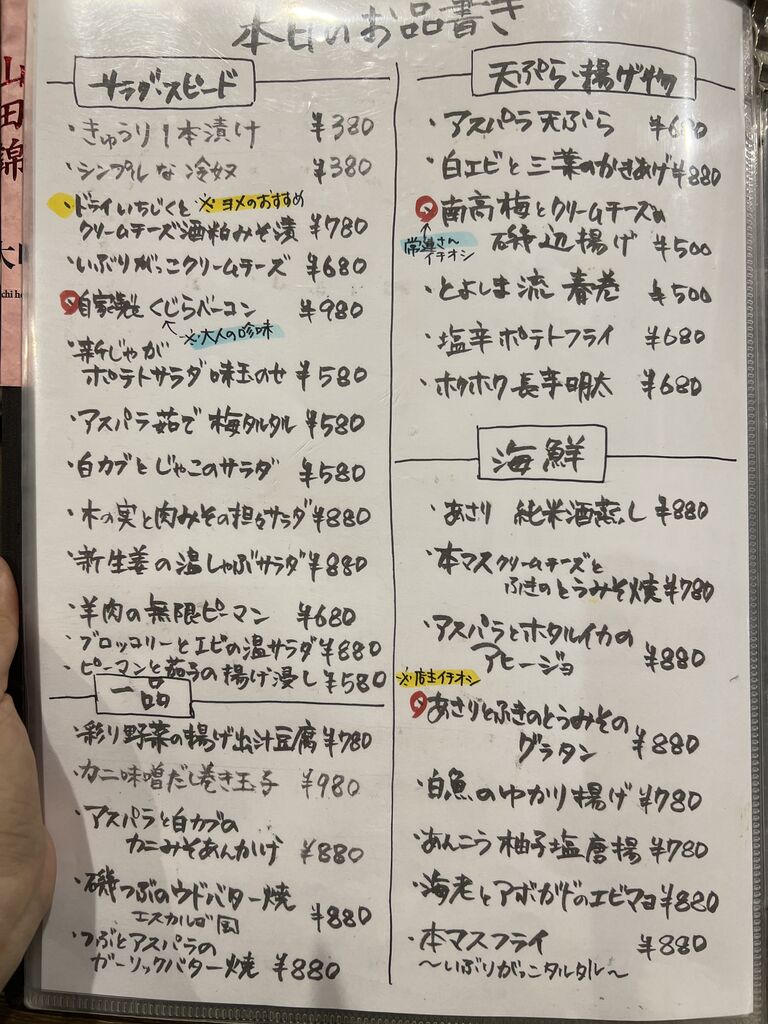 本日のお品書き
サラダ・スピード
・きゅうり1本漬け ¥380
・シンプルな冷奴 ¥380
・ドライいちじくと ※ヨメのおすすめ
クリームチーズ酒粕みそ漬 ¥780
・いぶりがっこクリームチーズ ¥680
自家製 くじらベーコン ¥980
※大人の珍味
・新じゃが
ポテトサラダ 味玉のせ ¥580
・アスパラ茹で 梅タルタル ¥580
・白カブとじゃこのサラダ ¥580
・木の実と肉みその担々サラダ ¥880
・新生姜の温しゃぶサラダ ¥880
・羊肉の無限ピーマン ¥680
・ブロッコリーとエビの温サラダ ¥880
・ピーマンと茄子の揚げ浸し ¥580
一品
・彩り野菜の揚げ出汁豆腐 ¥780
・カニ味噌だし巻き玉子 ¥980
・アスパラと白カブの
カニみそあんかけ ¥880
・磯つぶのウドバター焼
エスカルゴ風 ¥880
・つぶとアスパラの
ガーリックバター焼 ¥880
天ぷら・揚げ物
・アスパラ天ぷら ¥680
・白エビと三葉のかきあげ ¥880
南高梅とクリームチーズの
常連さん
イチオシ
磯辺揚げ ¥500
・とよしま流 春巻 ¥500
・塩辛ポテトフライ ¥680
・ホクホク長芋明太 ¥680
海鮮
・あさり 純米酒蒸し ¥880
・本マスクリームチーズと
ふきのとうみそ焼 ¥780
・アスパラとホタルイカの
アヒージョ ¥880
※店主イチオシ
あさりとふきのとうみその
グラタン ¥880
・白魚のゆかり揚げ ¥780
・あんこう柚子塩唐揚 ¥780
・海老とアボガドのエビマヨ ¥880
・本マスフライ ¥880
〜いぶりがっこタルタル〜
山田錦